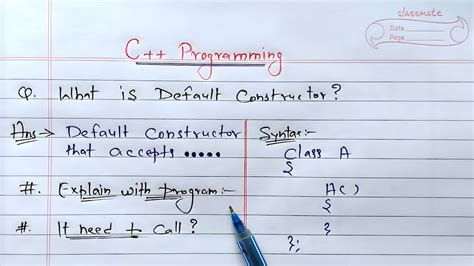 classmate
Date
Page
C++ Programming
Q. What is Default Constructor?
Ans → Default Constructor
that accepts .....
#. Explain with program:-
#. It need to Call?
Syntax:-
Class A
{
A()
{
}
};